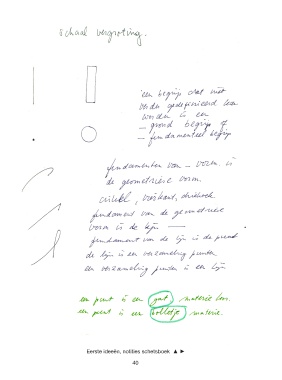 schaal vergroting.
een begrip dat niet
verder gedefinieerd kan
worden is een
— grond begrip of
— fundamenteel begrip
fundamenten van - vorm is
de geometrische vorm
cirkel, vierkant, driehoek
fundament van de geometrische
vorm is de lijn —
fundament van de lijn is de punt
de lijn is een verzameling punten
een verzameling punten is een lijn
een punt is een gat materie loos.
een punt is een bolletje materie.
Eerste ideeën, notities schetsboek ▲ ►
40